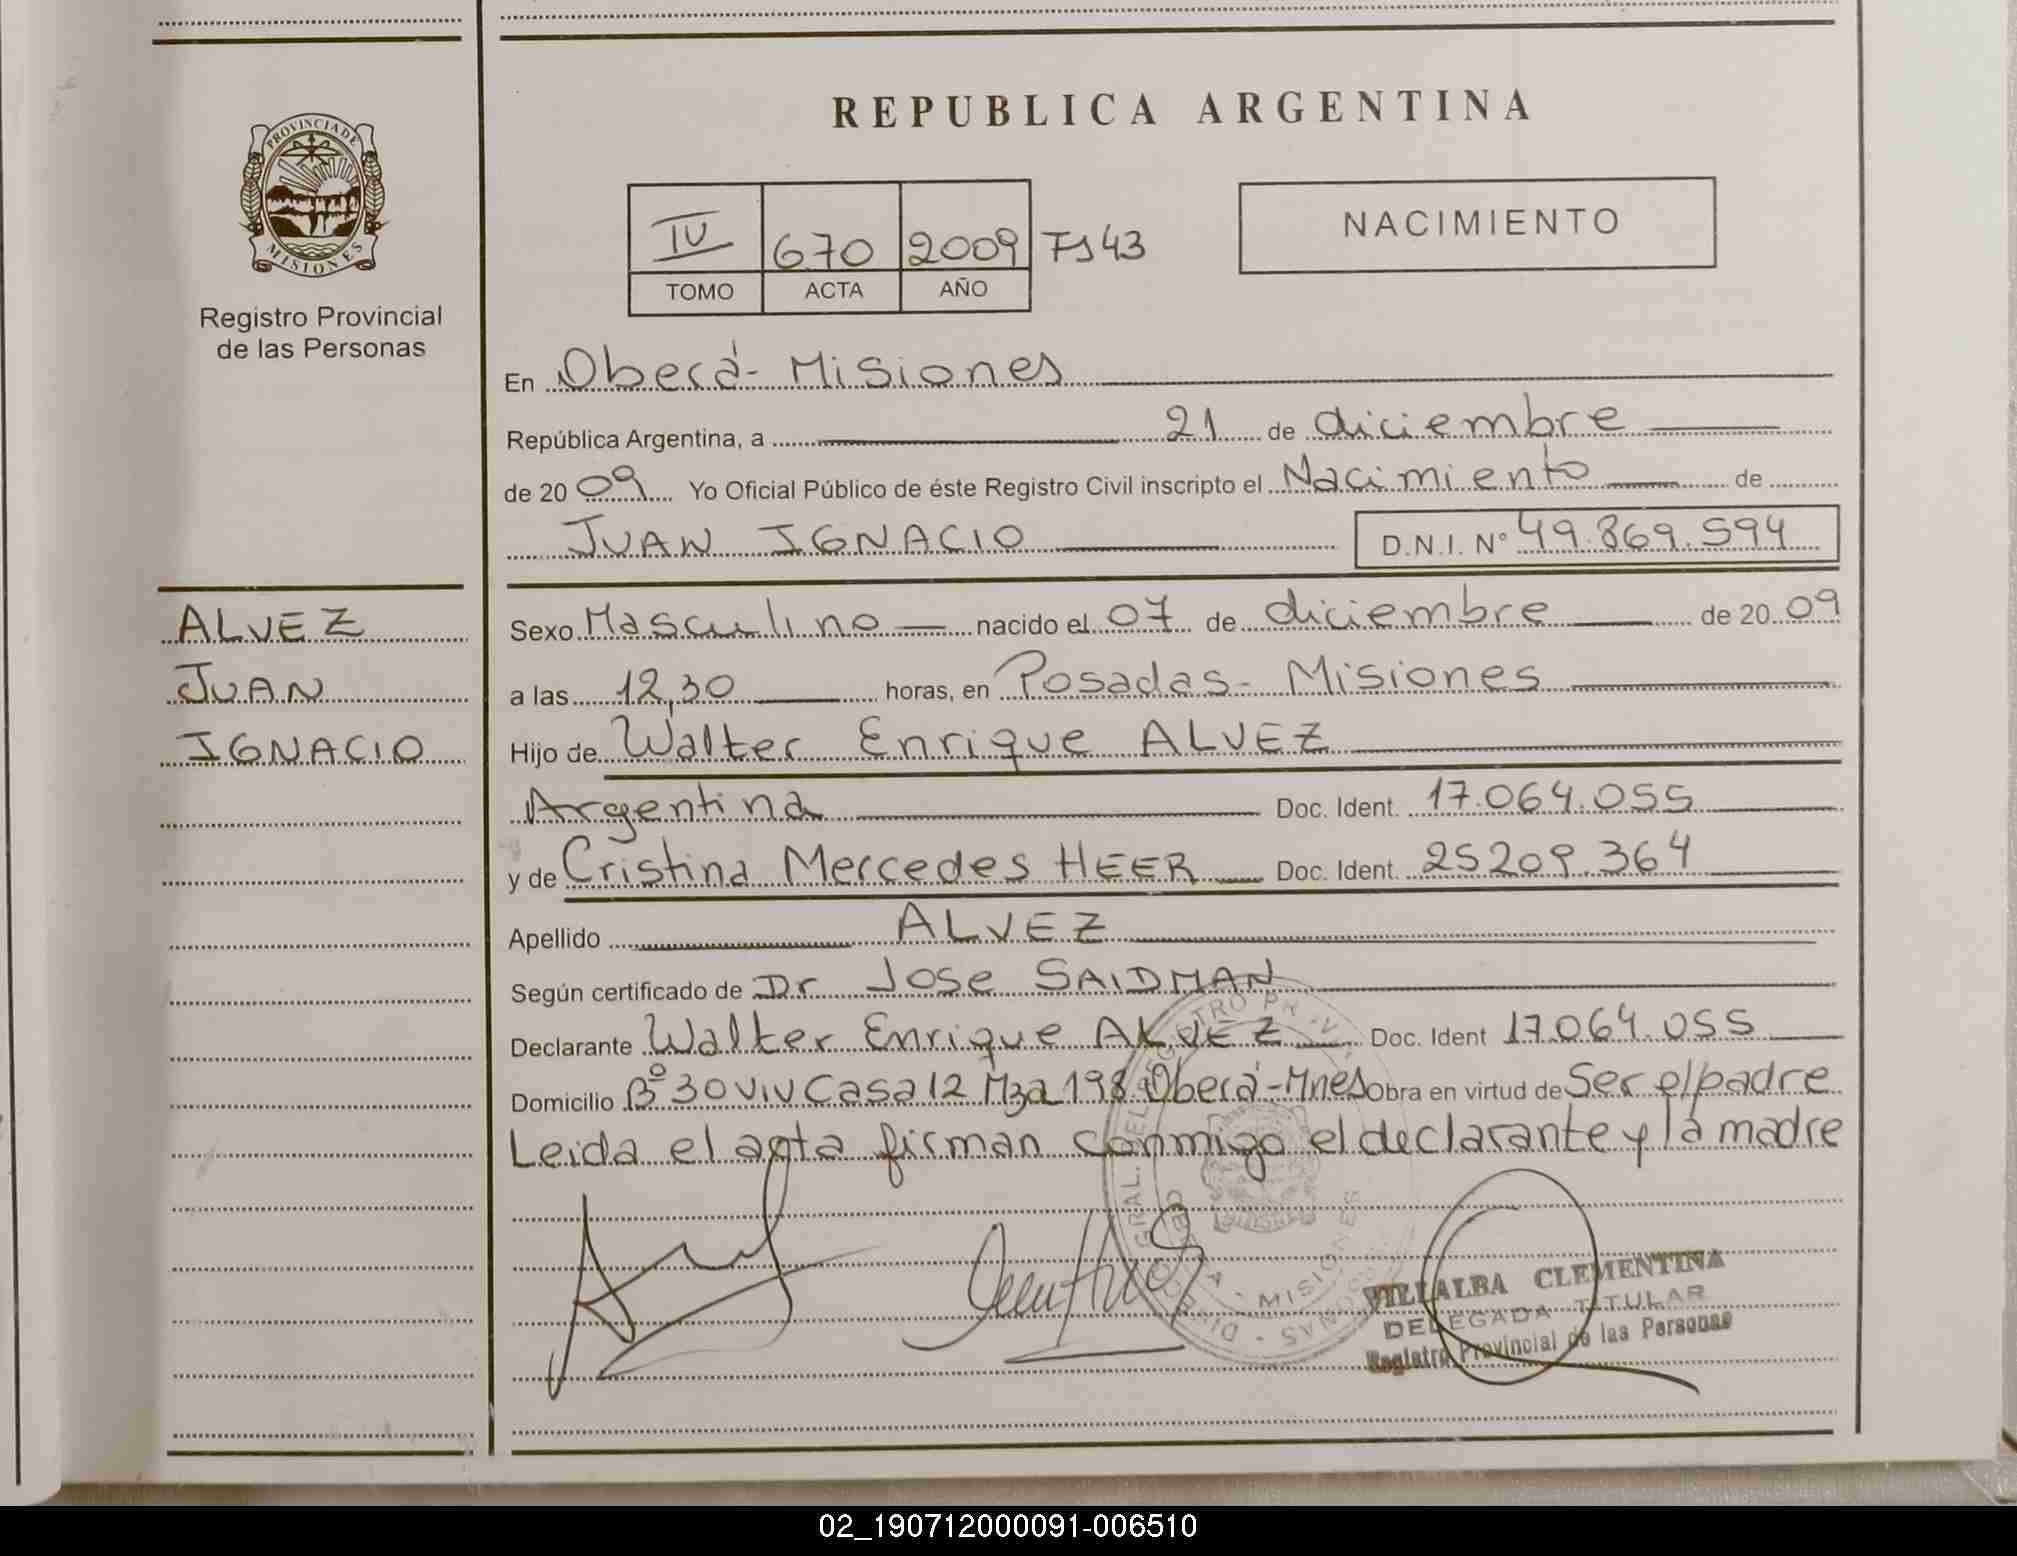 REPUBLICA ARGENTINA
PROVINCIA DE
MISIONES
Registro Provincial
de las Personas
IV 670 2009 Fs 43
TOMO ACTA AÑO
NACIMIENTO
En Oberá - Misiones
República Argentina, a 21 de diciembre
de 20 09 Yo Oficial Público de éste Registro Civil inscripto el Nacimiento de
JUAN IGNACIO D.N.I. Nº 49.869.594
ALVEZ
JUAN
IGNACIO
Sexo Masculino nacido el 07 de diciembre de 20 09
a las 12,30 horas, en Posadas - Misiones
Hijo de Walter Enrique ALVEZ
Argentina Doc. Ident. 17.064.055
y de Cristina Mercedes HEER Doc. Ident. 25209.364
Apellido ALVEZ
Según certificado de Dr Jose SAIDMAN
Declarante Walter Enrique ALVEZ Doc. Ident 17.064.055
Domicilio Bº 30 viv Casa 12 Mza 198 Oberá - Mnes Obra en virtud de Ser el padre
Leida el acta firman conmigo el declarante y la madre
VILLALBA CLEMENTINA
DELEGADA TITULAR
Registro Provincial de las Personas
02_190712000091-006510